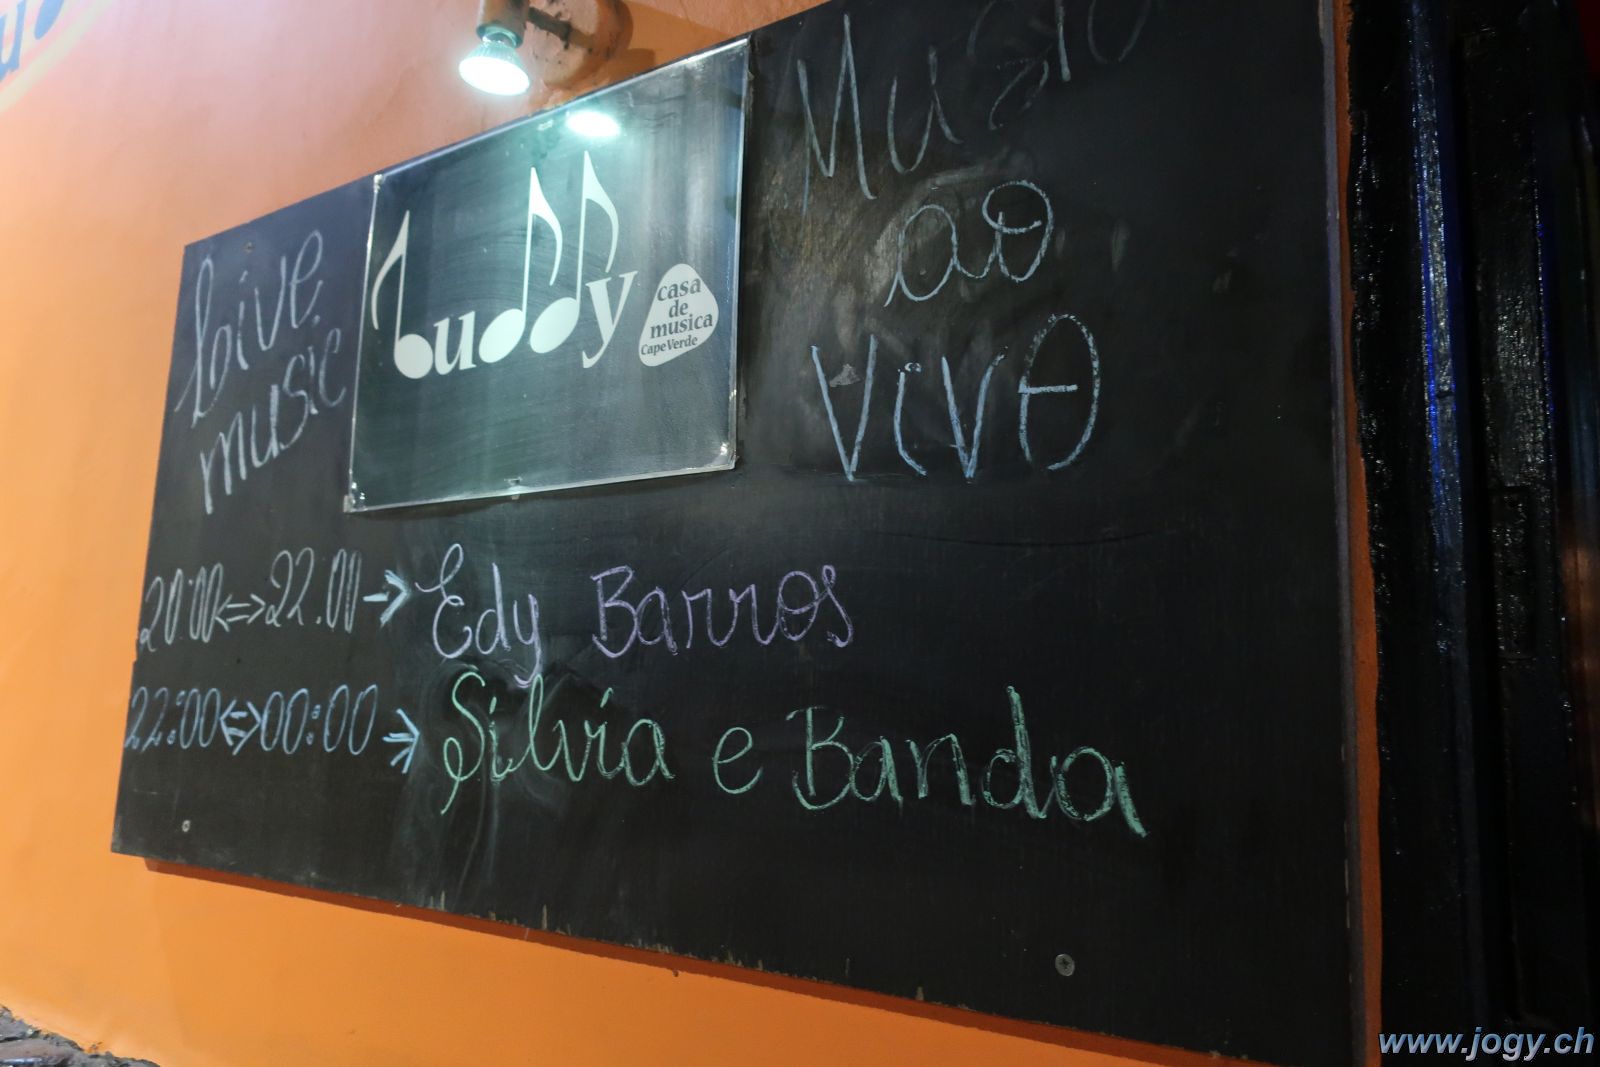 Live
music
buddy
casa
de
musica
Cape Verde
Music
ao
VIVO
20:00<=>22:00 → Edy Barros
22:00<=>00:00 → Silvia e Banda
www.jogy.ch